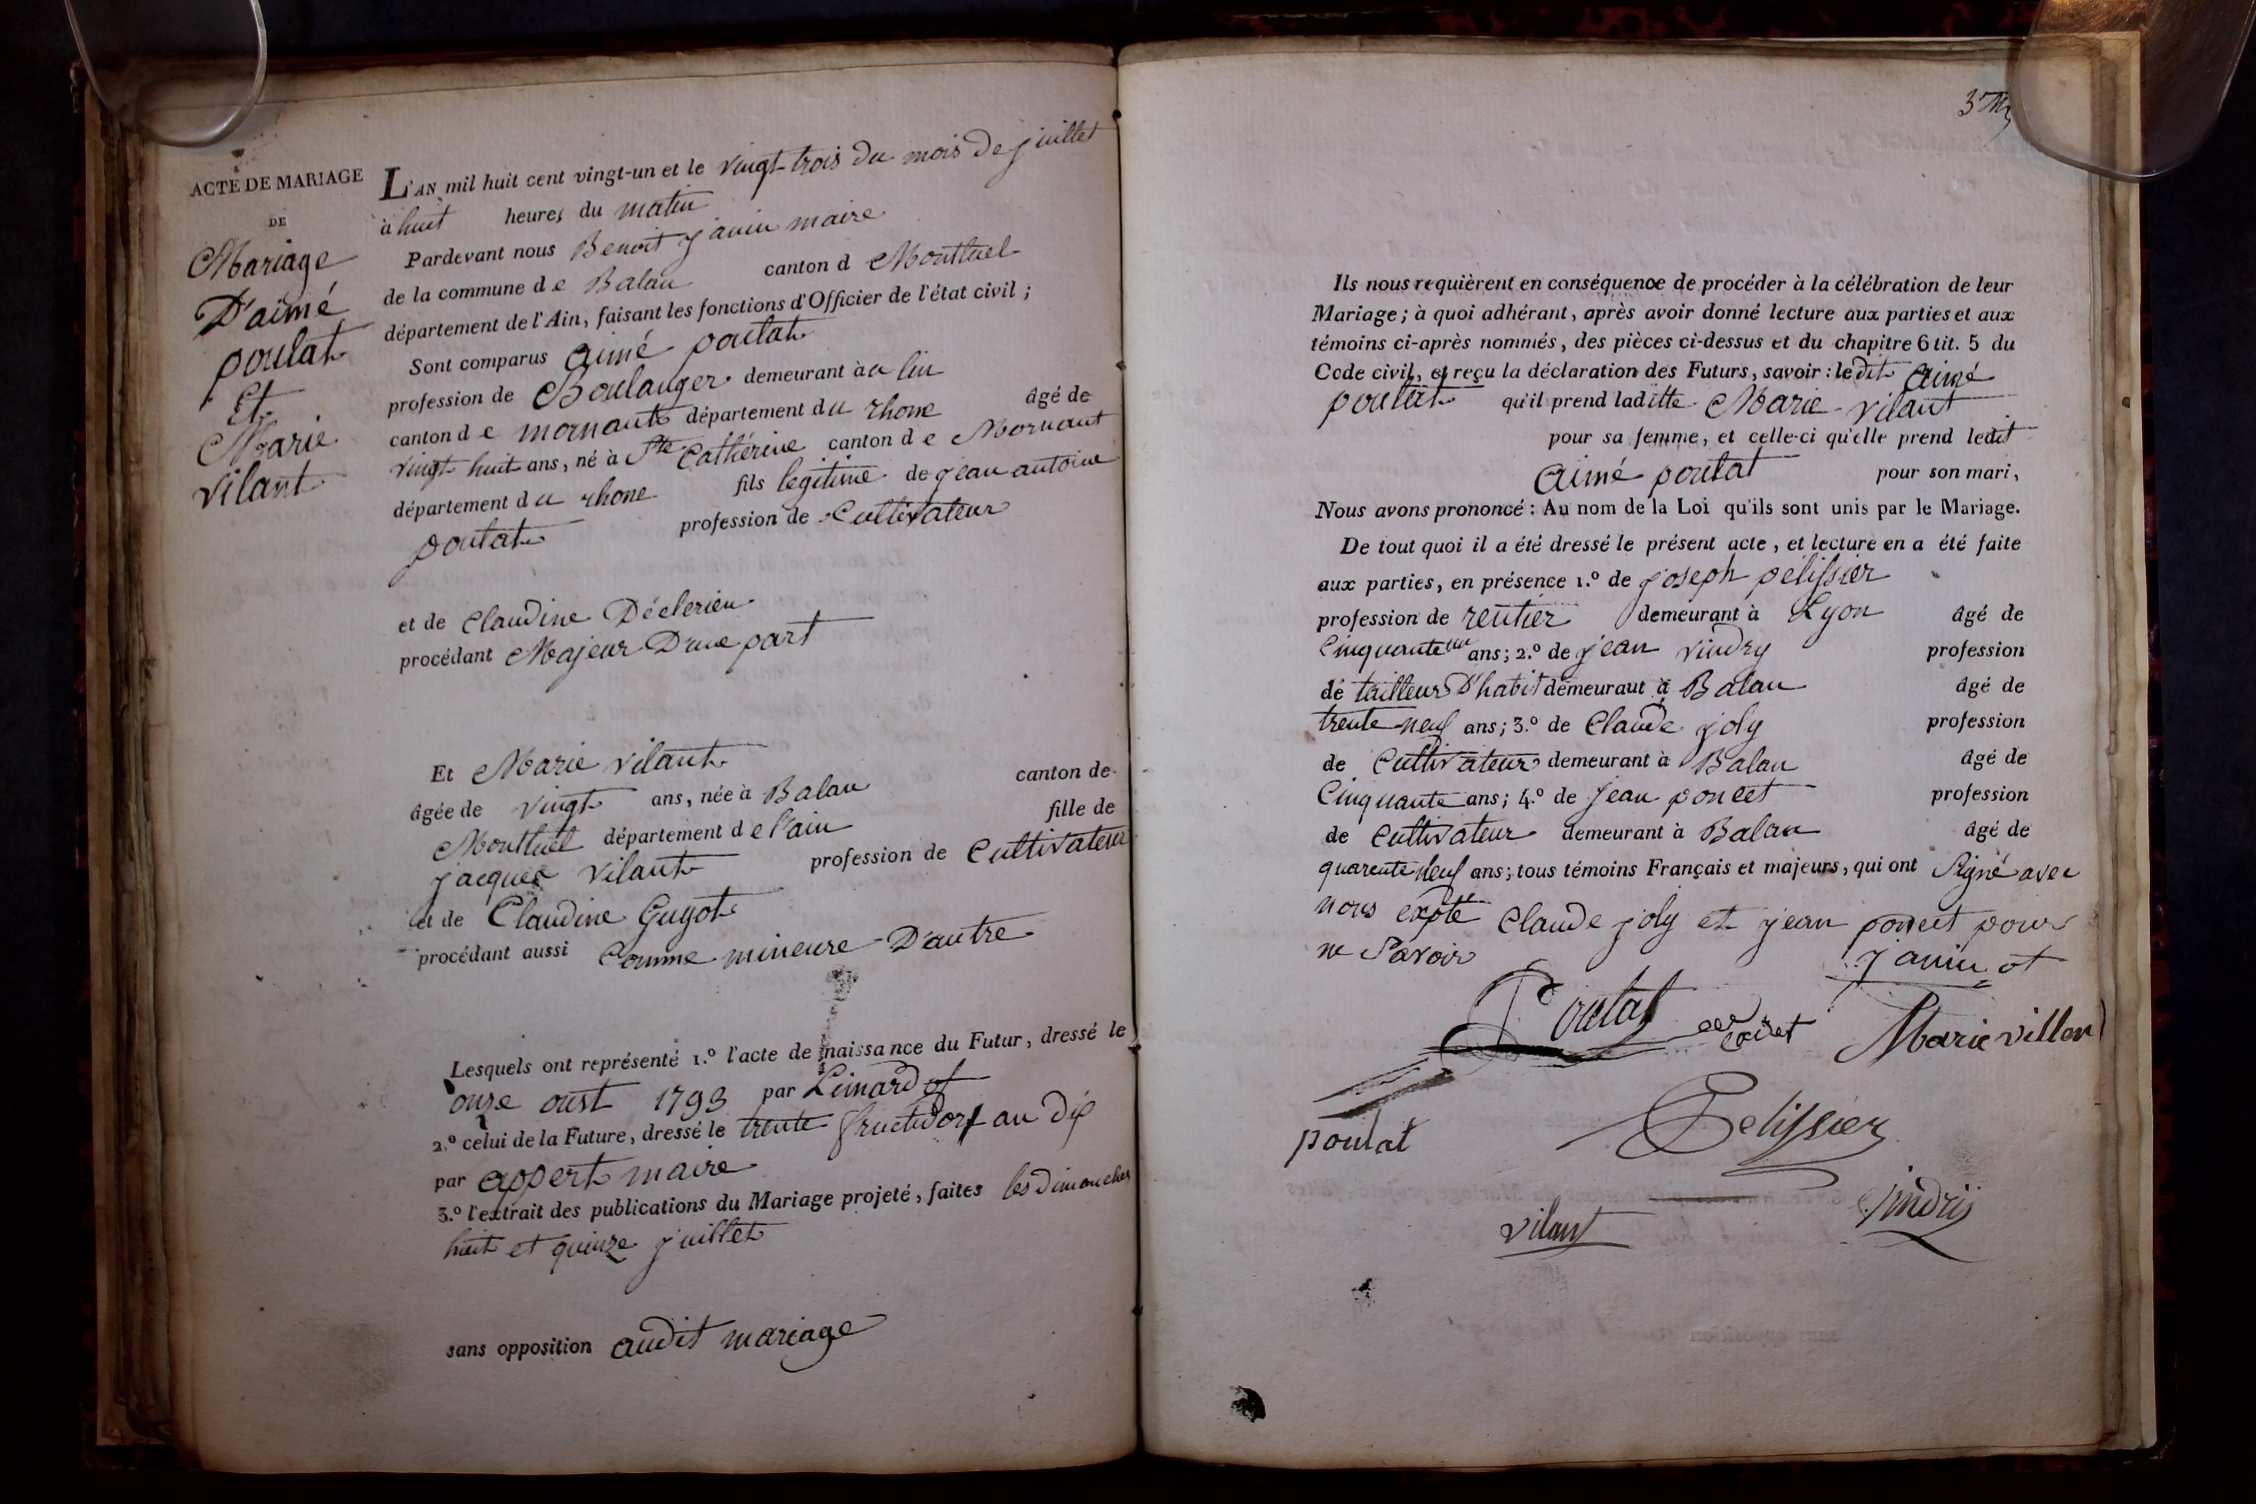 ACTE DE MARIAGE
DE
Mariage
D'aimé
poulat
Et
Marie
vilant
L'AN mil huit cent vingt-un et le vingt trois du mois de juillet
à huit heures du matin
Pardevant nous Benoit janin maire
de la commune de Balan canton d Montluel
département de l'Ain, faisant les fonctions d'Officier de l'état civil ;
Sont comparus aimé poulat
profession de Boulanger demeurant à
canton de mornant département du rhone âgé de
vingt huit ans, né à Ste Cathérine canton de Mornant
département du rhone fils legitime de jean antoine
poulat profession de Cultivateur
et de Claudine Déclerieu
procédant Majeur D'une part
Et Marie vilant
âgée de vingt ans, née à Balan canton de
Montluel département de l'ain fille de
jacques vilant profession de Cultivateur
et de Claudine Guyot
procédant aussi Comme mineure D'autre
Lesquels ont représenté 1.º l'acte de naissance du Futur, dressé le
onze oust 1793 par
2.º celui de la Future, dressé le trente fructidor an dix
par appert maire
3.º l'extrait des publications du Mariage projeté, faites les dimanches
huit et quinze juillet
sans opposition audit mariage
Ils nous requièrent en conséquence de procéder à la célébration de leur
Mariage ; à quoi adhérant, après avoir donné lecture aux parties et aux
témoins ci-après nommés, des pièces ci-dessus et du chapitre 6 tit. 5 du
Code civil, et reçu la déclaration des Futurs, savoir : ledit aimé
poulat qu'il prend laditte Marie vilant
pour sa femme, et celle-ci qu'elle prend ledit
aimé poulat pour son mari,
Nous avons prononcé : Au nom de la Loi qu'ils sont unis par le Mariage.
De tout quoi il a été dressé le présent acte, et lecture en a été faite
aux parties, en présence 1.º de joseph pelissier
profession de rentier demeurant à Lyon âgé de
Cinquante un ans ; 2.º de jean vindry profession
de tailleur D'habit demeurant à Balan âgé de
trente neuf ans ; 3.º de Claude joly profession
de Cultivateur demeurant à Balan âgé de
Cinquante ans ; 4.º de jean poncet profession
de Cultivateur demeurant à Balan âgé de
quarente neuf ans ; tous témoins Français et majeurs, qui ont Signé avec
nous expté Claude joly et jean poncet pour
ne Savoir
janin
Poulat
Marie villan
poulat
Pelissier
vilant
vindry